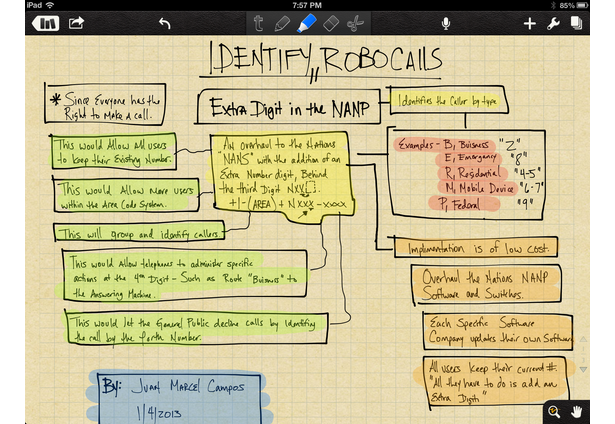 iPad
7:57 PM
85%
IDENTIFY ROBOCALLS
* Since Everyone has the
Right to Make a call.
Extra Digit in the NANP
Identifies the Caller by type
This would Allow All users
to keep their Existing Number.
This would Allow More users
within the Area Code System.
This will group and identify callers.
This would Allow telephones to administer specific
actions at the 4th Digit - Such as Route "Buisness" to
the Answering Machine.
This would let the General Public decline calls by identifying
the call by the forth Number.
An overhaul to the Nations
"NANS" with the addition of an
Extra Number digit, Behind
the third Digit NXX
+1-(AREA) + NXXX-XXXX
Examples - B, Buisness "2"
E, Emergency "8"
R, Residential "4-5"
M, Mobile Device "6-7"
P, Federal "9"
Implimentation is of low cost.
Overhaul the Nations NANP
Software and Switches.
Each Specific Software
Company updates their own Software
All users keep their current #.
"All they have to do is add an
Extra Digit"
By: Juan Marcel Campos
1/4/2013